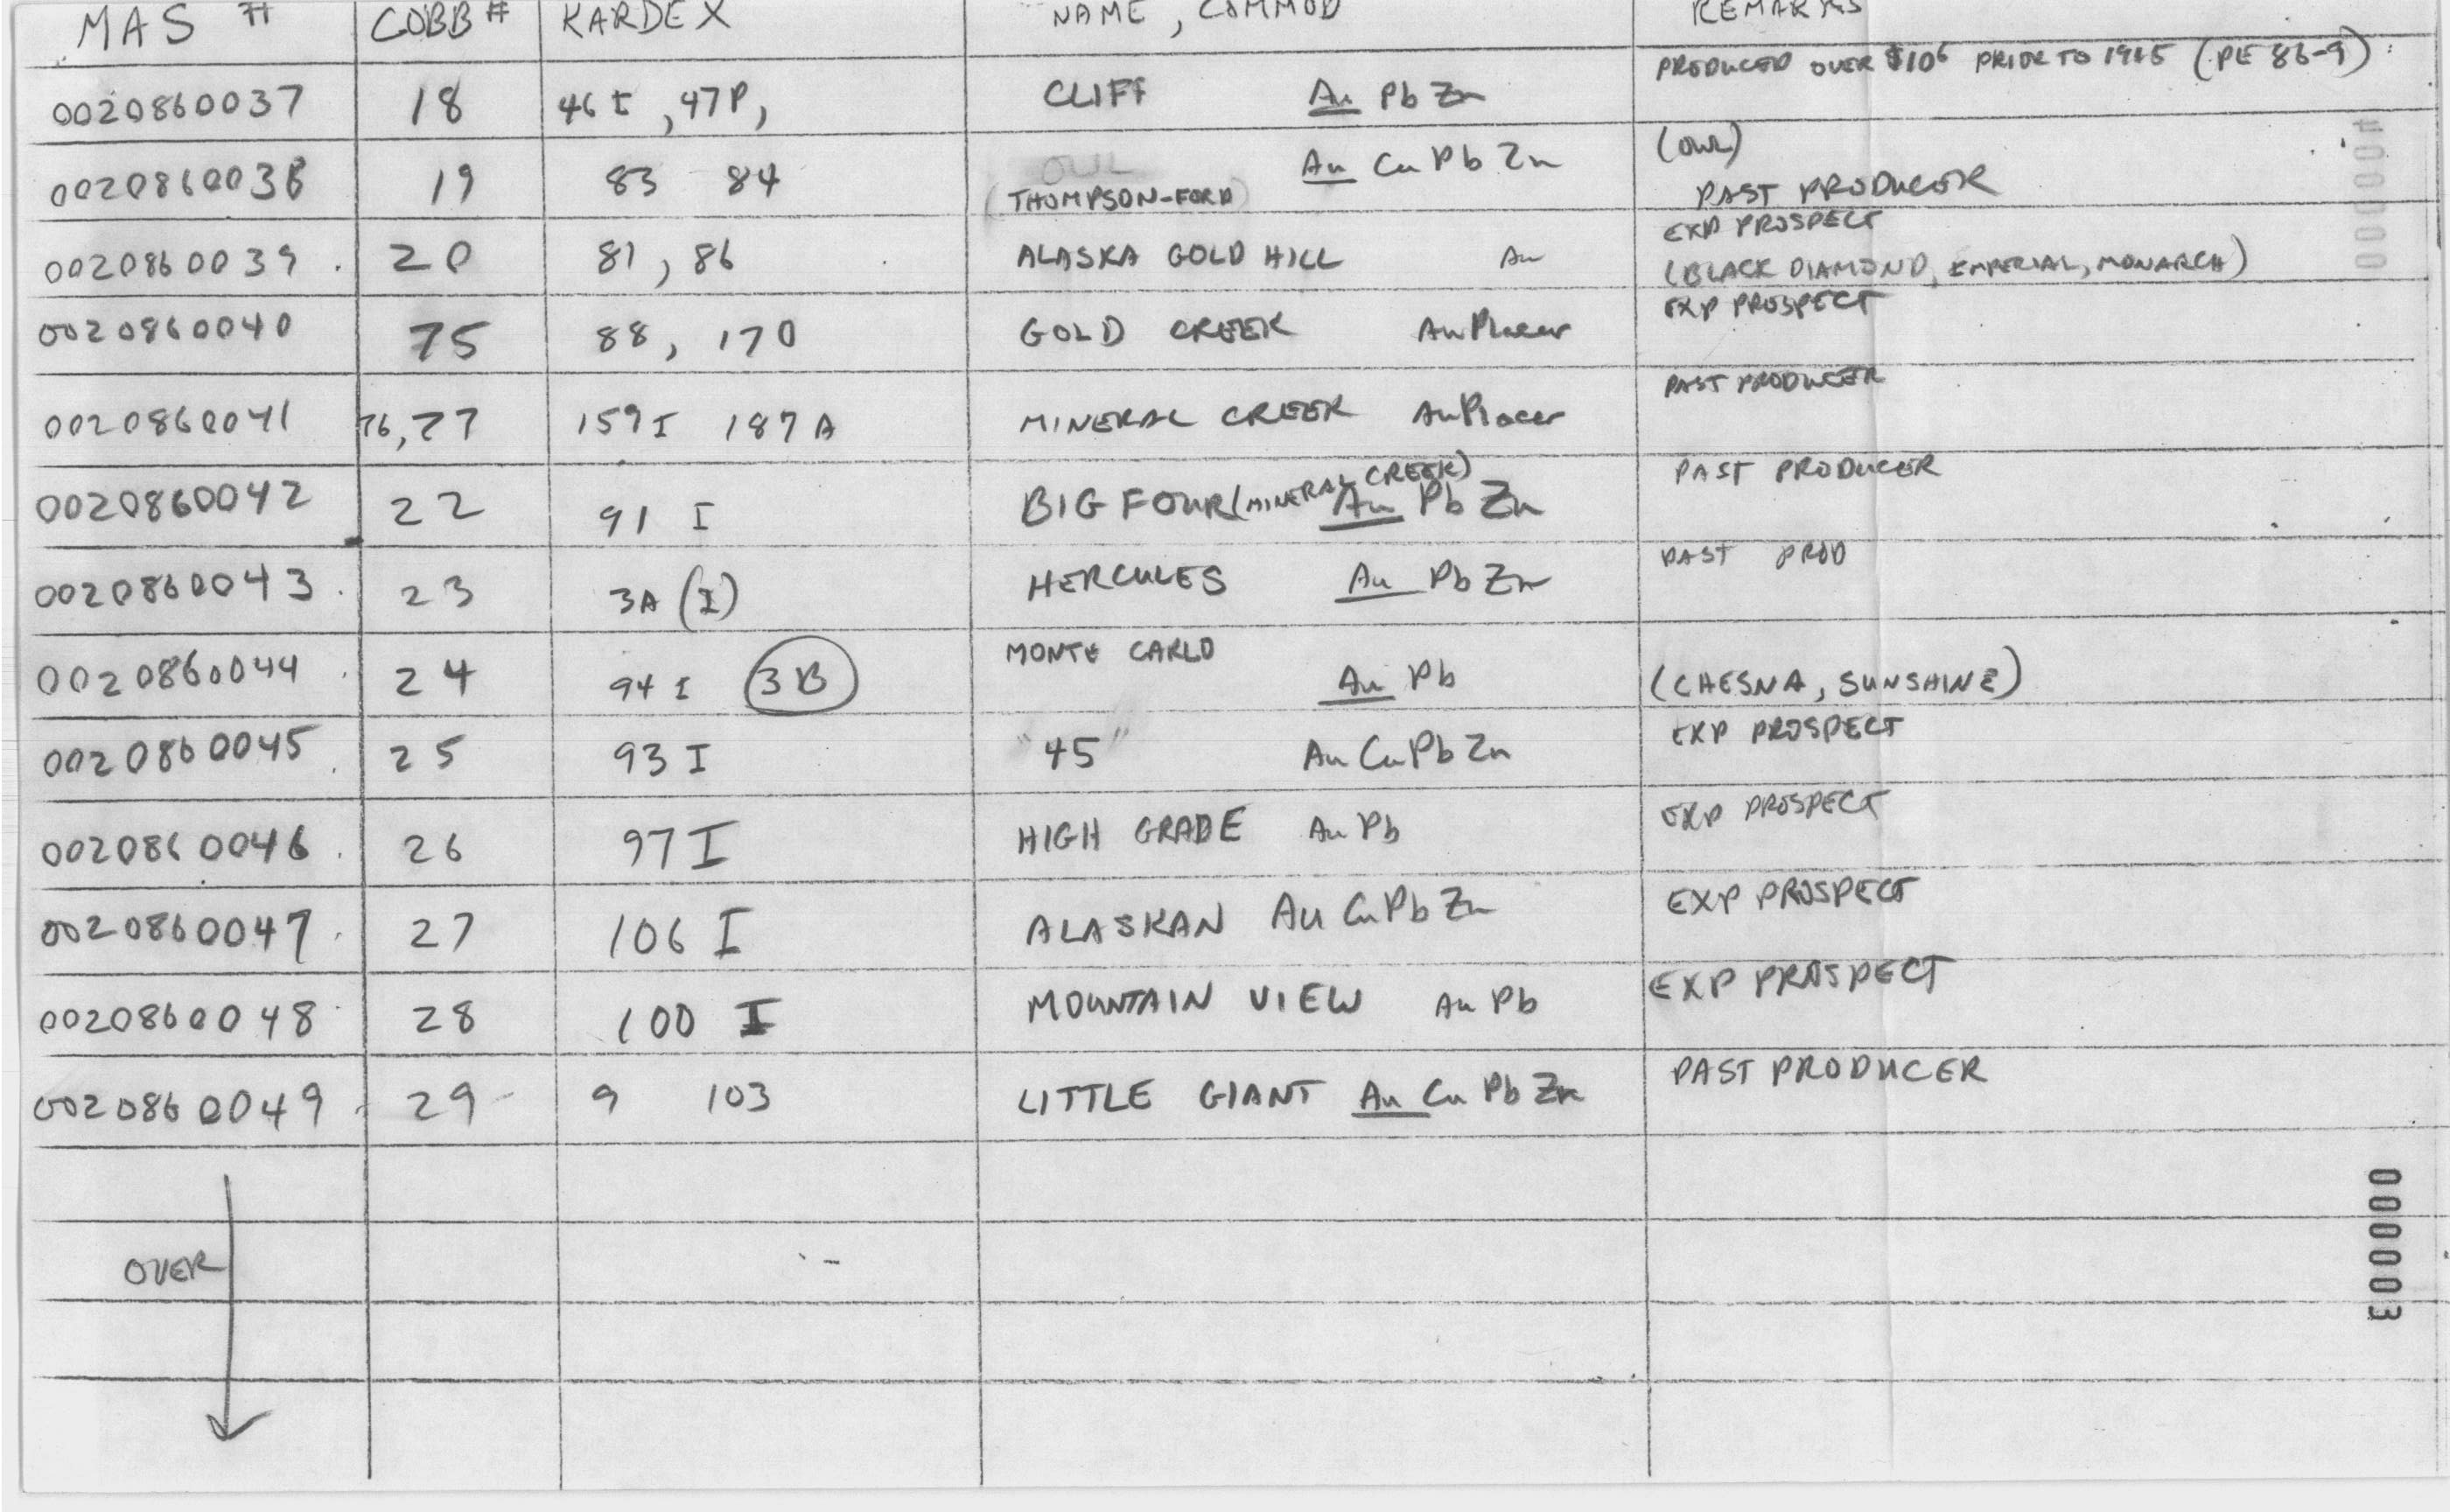 MAS # COBB # KARDEX NAME, COMMOD REMARKS
0020860037 18 46 I, 47P, CLIFF Au Pb Zn PRODUCED OVER $10⁶ PRIOR TO (PE 86-9)
0020860038 19 83 84 OWL (THOMPSON-FORD) Au Cu Pb Zn (OWL) PAST PRODUCER
0020860039 20 81, 86 ALASKA GOLD HILL Au EXP PROSPECT (BLACK DIAMOND, IMPERIAL, MONARCH)
0020860040 75 88, 170 GOLD CREEK Au Placer EXP PROSPECT
0020860041 76, 77 159 I 187 A MINERAL CREEK Au Placer PAST PRODUCER
0020860042 22 91 I BIG FOUR (MINERAL CREEK) Au Pb Zn PAST PRODUCER
0020860043 23 3A (I) HERCULES Au Pb Zn PAST PROD
0020860044 24 94 I 3B MONTE CARLO Au Pb (CHESNA, SUNSHINE)
0020860045 25 93 I "45" Au Cu Pb Zn EXP PROSPECT
0020860046 26 97 I HIGH GRADE Au Pb EXP PROSPECT
0020860047 27 106 I ALASKAN Au Cu Pb Zn EXP PROSPECT
0020860048 28 100 I MOUNTAIN VIEW Au Pb EXP PROSPECT
0020860049 29 9 103 LITTLE GIANT Au Cu Pb Zn PAST PRODUCER
OVER
000003